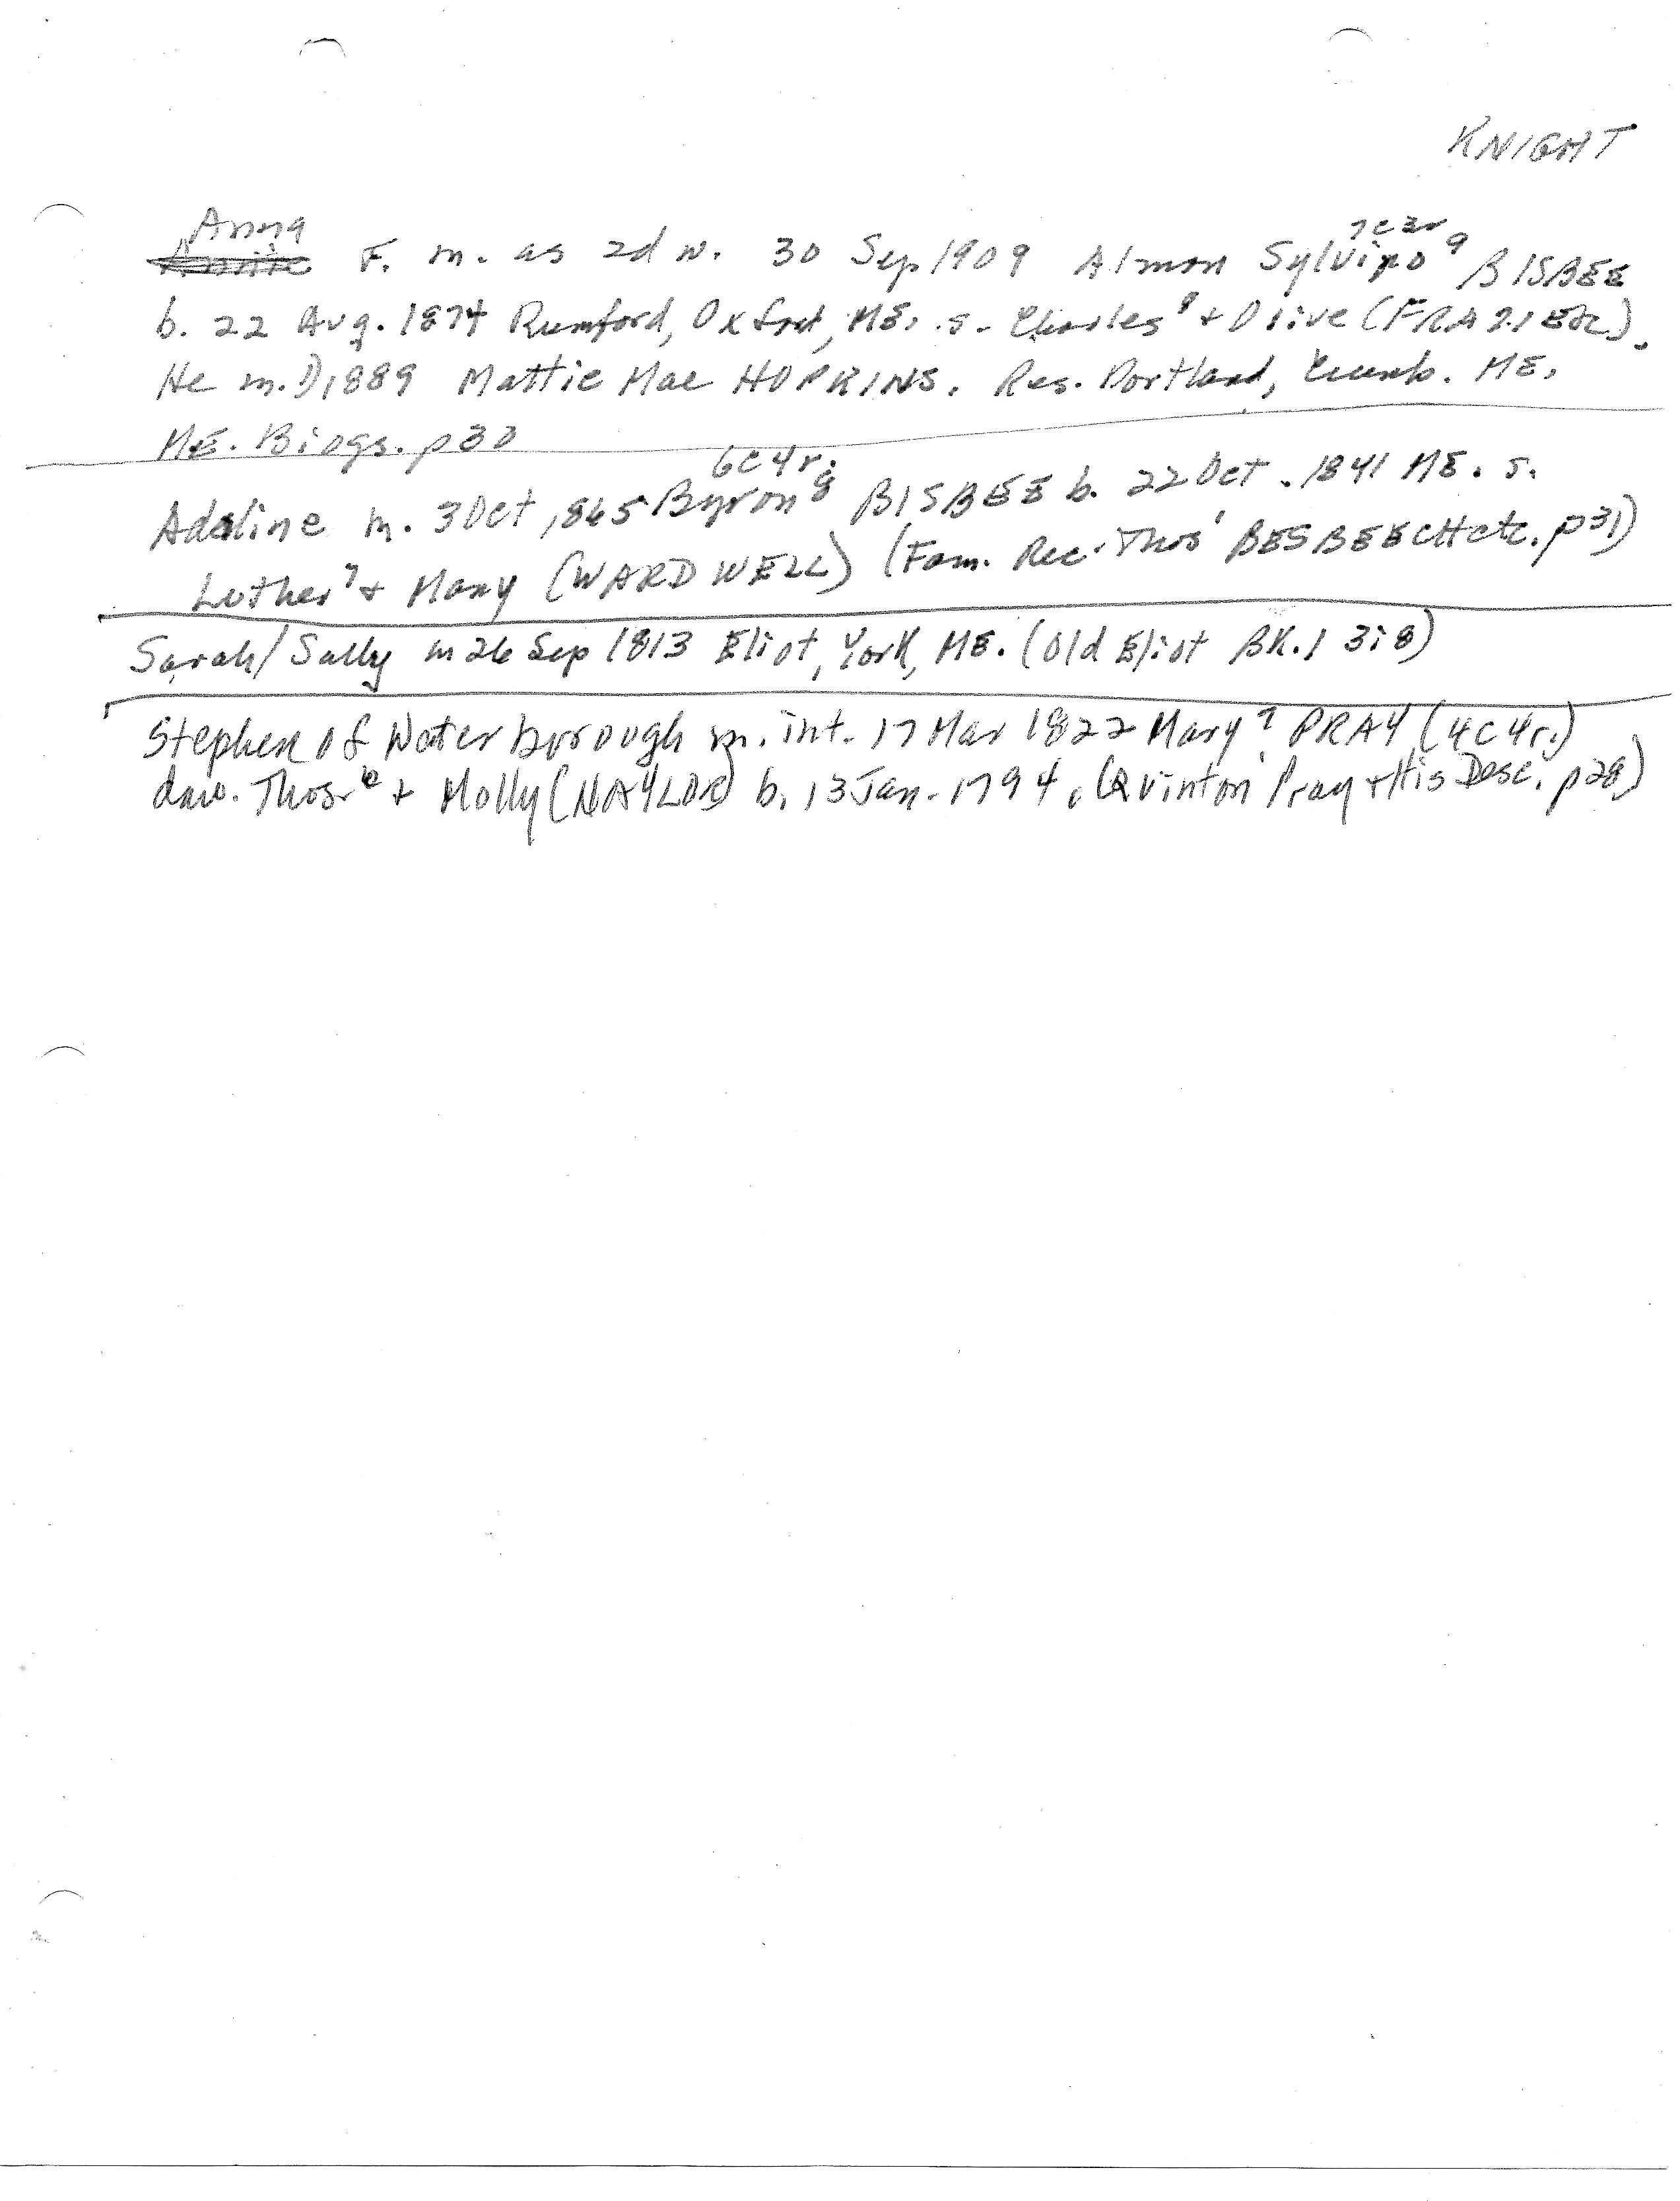 KNIGHT
Anna
F. m. as 2d w. 30 Sep 1909 Almon Sylvino⁹ BISBEE
7c3r
b. 22 Aug. 1874 Rumford, Oxford, ME, s. Charles⁸ + Olive (FRAZIER).
He m.1), 1889 Mattie Mae HOPKINS. Res. Portland, Cumb. ME.
ME. Biogs. p30
6c4r.
Adaline m. 3 Oct 1865 Byron⁸ BISBEE b. 22 Oct. 1841 ME. s.
Luther⁷ + Mary (WARDWELL) (Fam. Rec. Thos¹ BESBEECH etc. p31)
Sarah/Sally m 26 Sep 1813 Eliot, York, ME. (Old Eliot BK.1 3:8)
Stephen of Waterborough m. int. 17 Mar 1822 Mary⁷ PRAY (4c4r.)
dau. Thos.⁶ + Molly (NAYLOR) b. 13 Jan. 1794. (Quinton Pray + His Desc. p28)